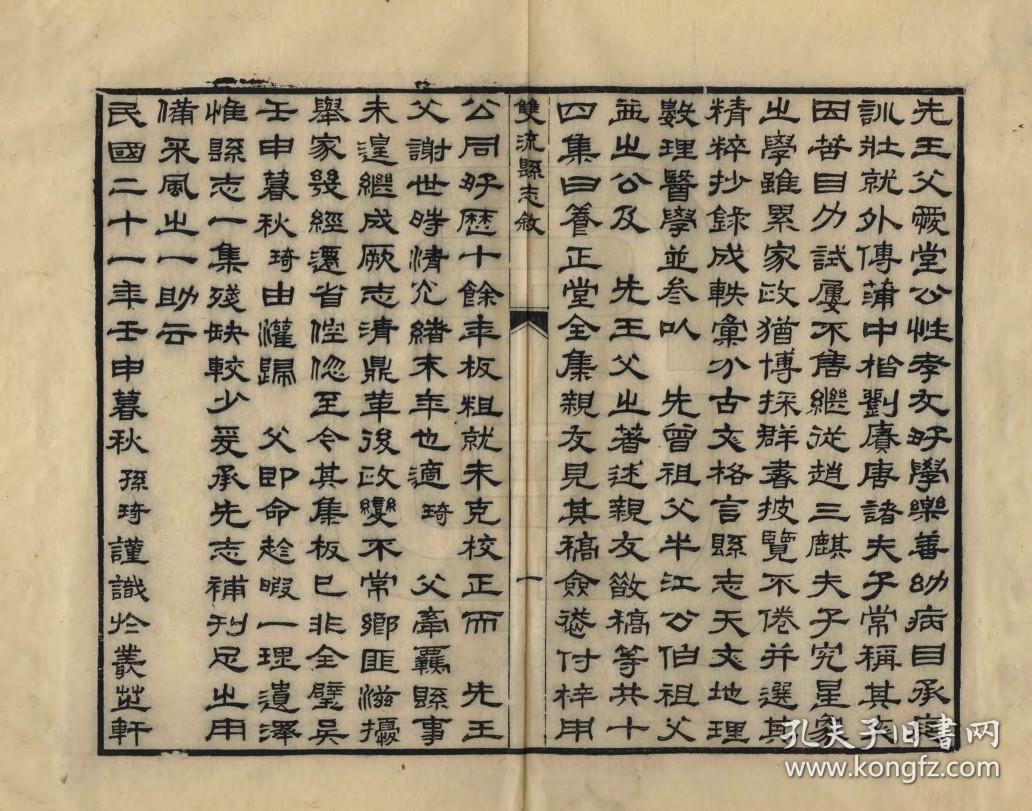 先王父彂堂公性孝友好學樂善幼病目承庭
訓壯就外傅蒲中楷劉賡唐諸夫子常稱其
因苦目力試屢不售繼從趙三麒夫子究星象
之學雖累家政猶博採群書披覽不倦并選其
精粹抄錄成軼彙分古文格言縣志天文地理
數理醫學並叅以 先曾祖父半江公伯祖父
益之公及 先王父之著述親友散稿等共十
四集曰養正堂全集親友見其稿僉慫付梓用
雙流縣志敘
一
公同好歷十餘年板粗就未克校正而 先王
父謝世時清光緒末年也適琦 父牽羈縣事
未遑繼成厥志清鼎革後政變不常鄉匪滋擾
舉家幾經遷省倥偬至今其集板已非全璧矣
壬申暮秋琦由灌歸 父即命趁暇一理遺澤
惟縣志一集殘缺較少爰承先志補刊足之用
備采風之一助云
民國二十一年壬申暮秋孫琦謹識於叢芝軒
孔夫子旧书网
www.kongfz.com